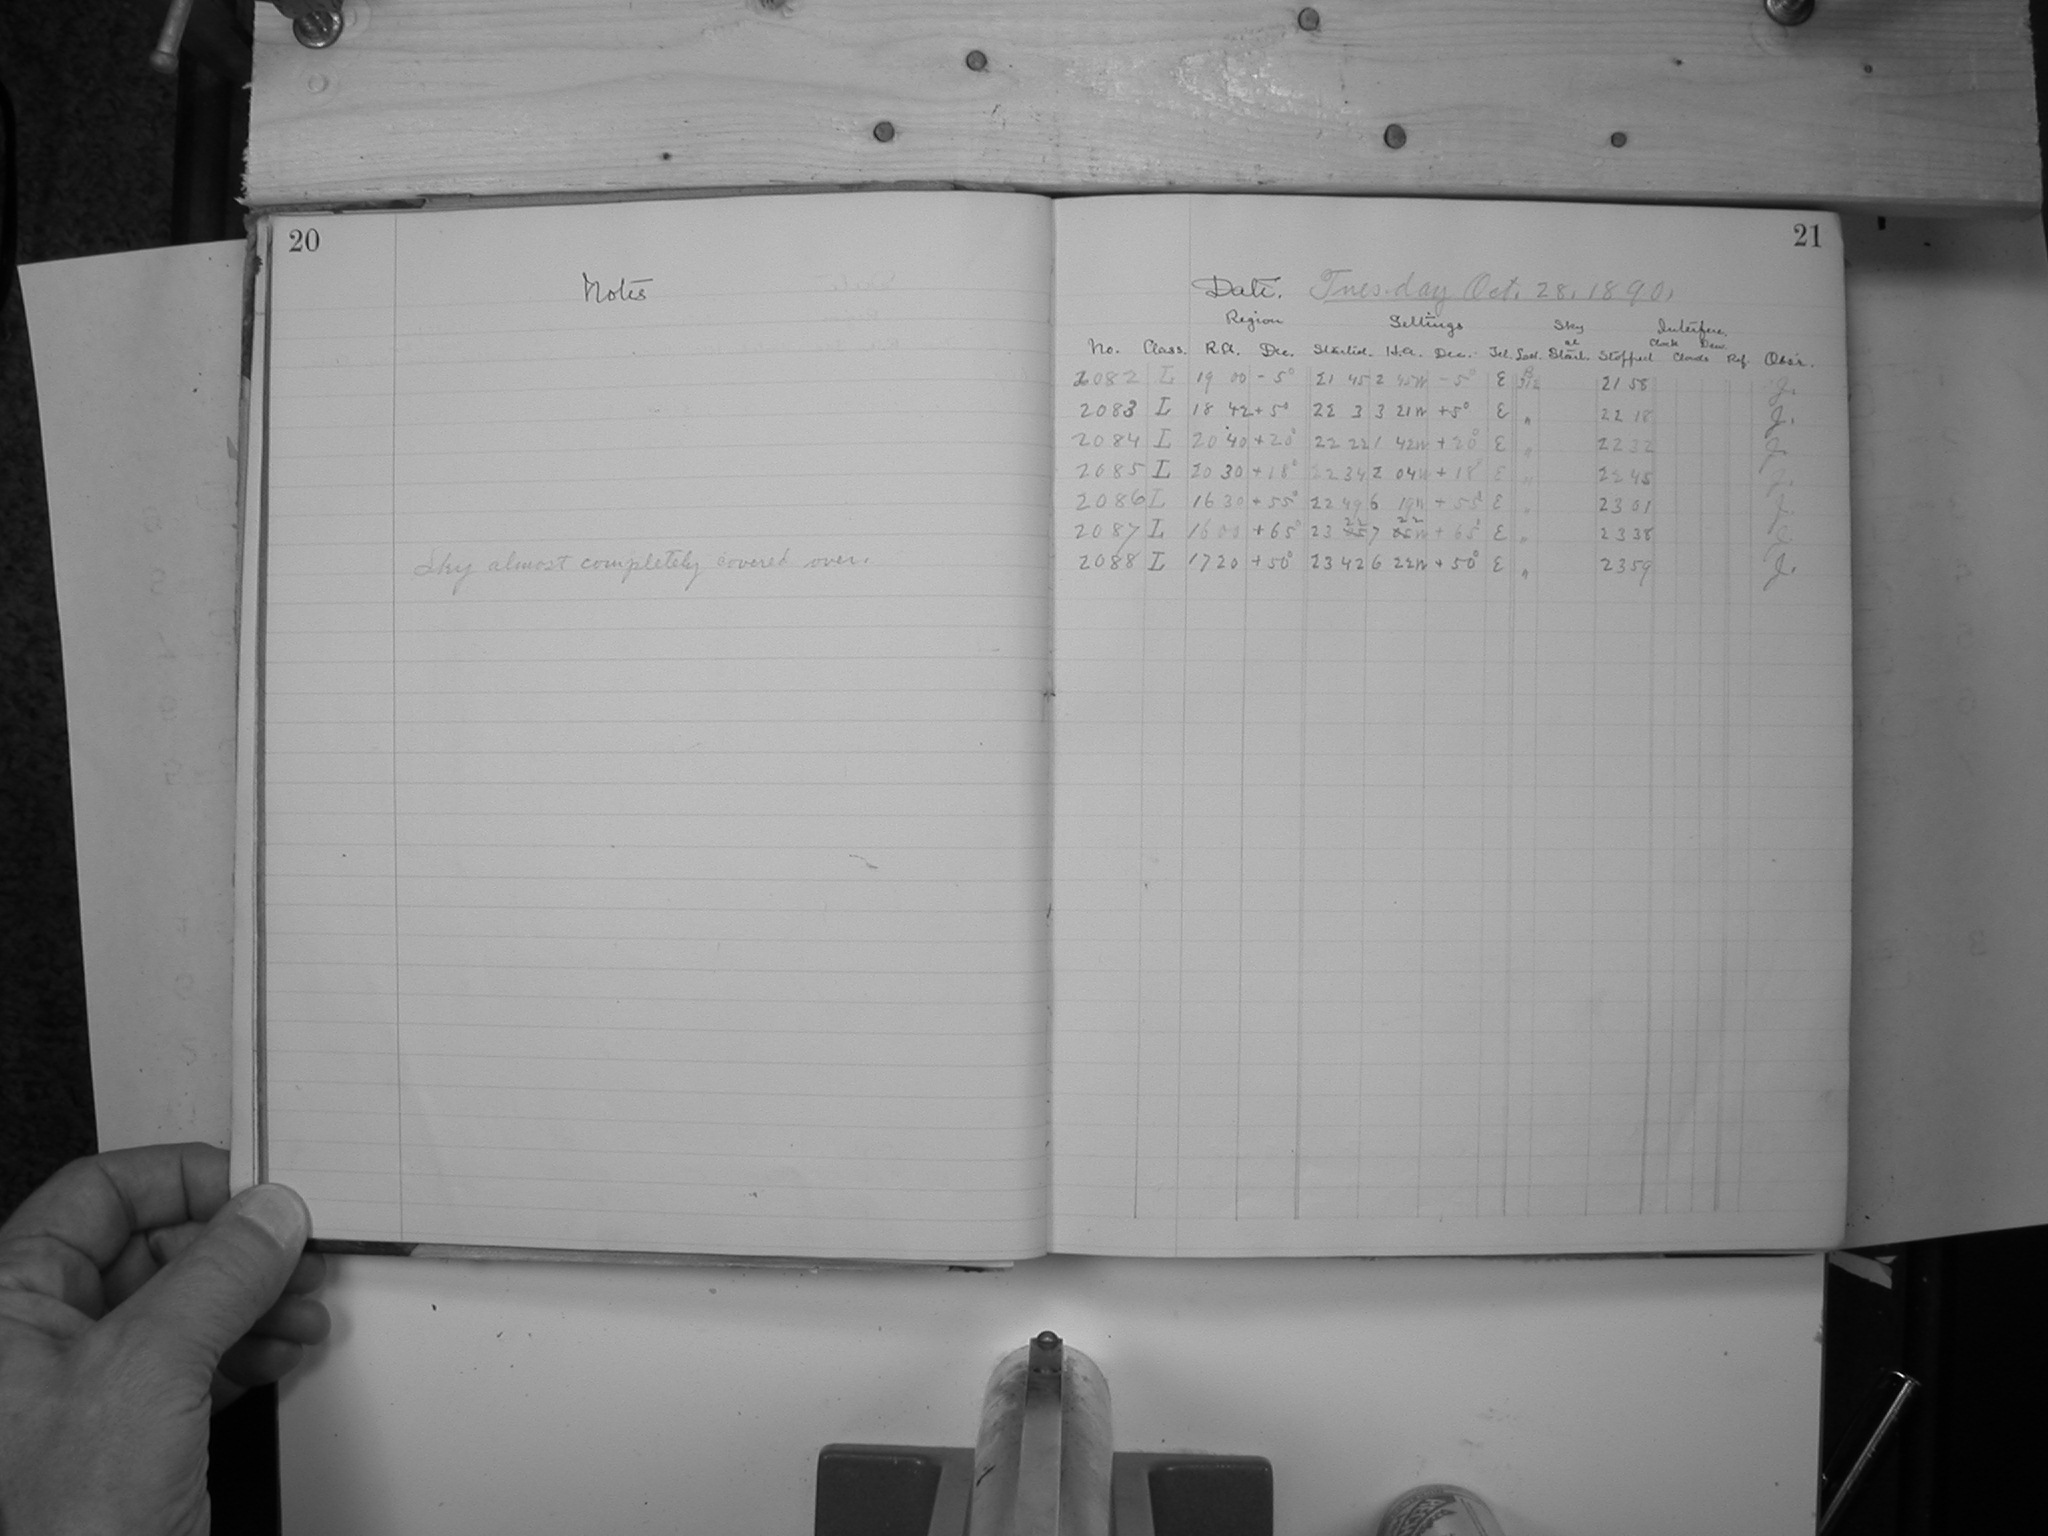 20
Notes
Sky almost completely covered over.
21
Date. Tuesday Oct. 28, 1890.
Region Settings Sky Interfere.
at Clock Dew.
No. Class. R.A. Dec. Started. H.A. Dec. Tel. Start. Stopped Clouds Ref. Obsr.
2082 L 19 00 - 5° 21 45 2 45w - 5° E 21 58 J.
2083 L 18 42 + 5° 22 3 3 21w + 5° E " 22 18 J.
2084 L 20 40 + 20° 22 22 1 42w + 20° E " 22 32 J.
2085 L 20 30 + 18° 22 34 2 04w + 18° E " 22 45 J.
2086 L 16 30 + 55° 22 49 6 19w + 55° E " 23 01 J.
22 22
2087 L 16 00 + 65° 23 7 w + 65° E " 23 38
2088 L 17 20 + 50° 23 42 6 22w + 50° E " 23 59 J.